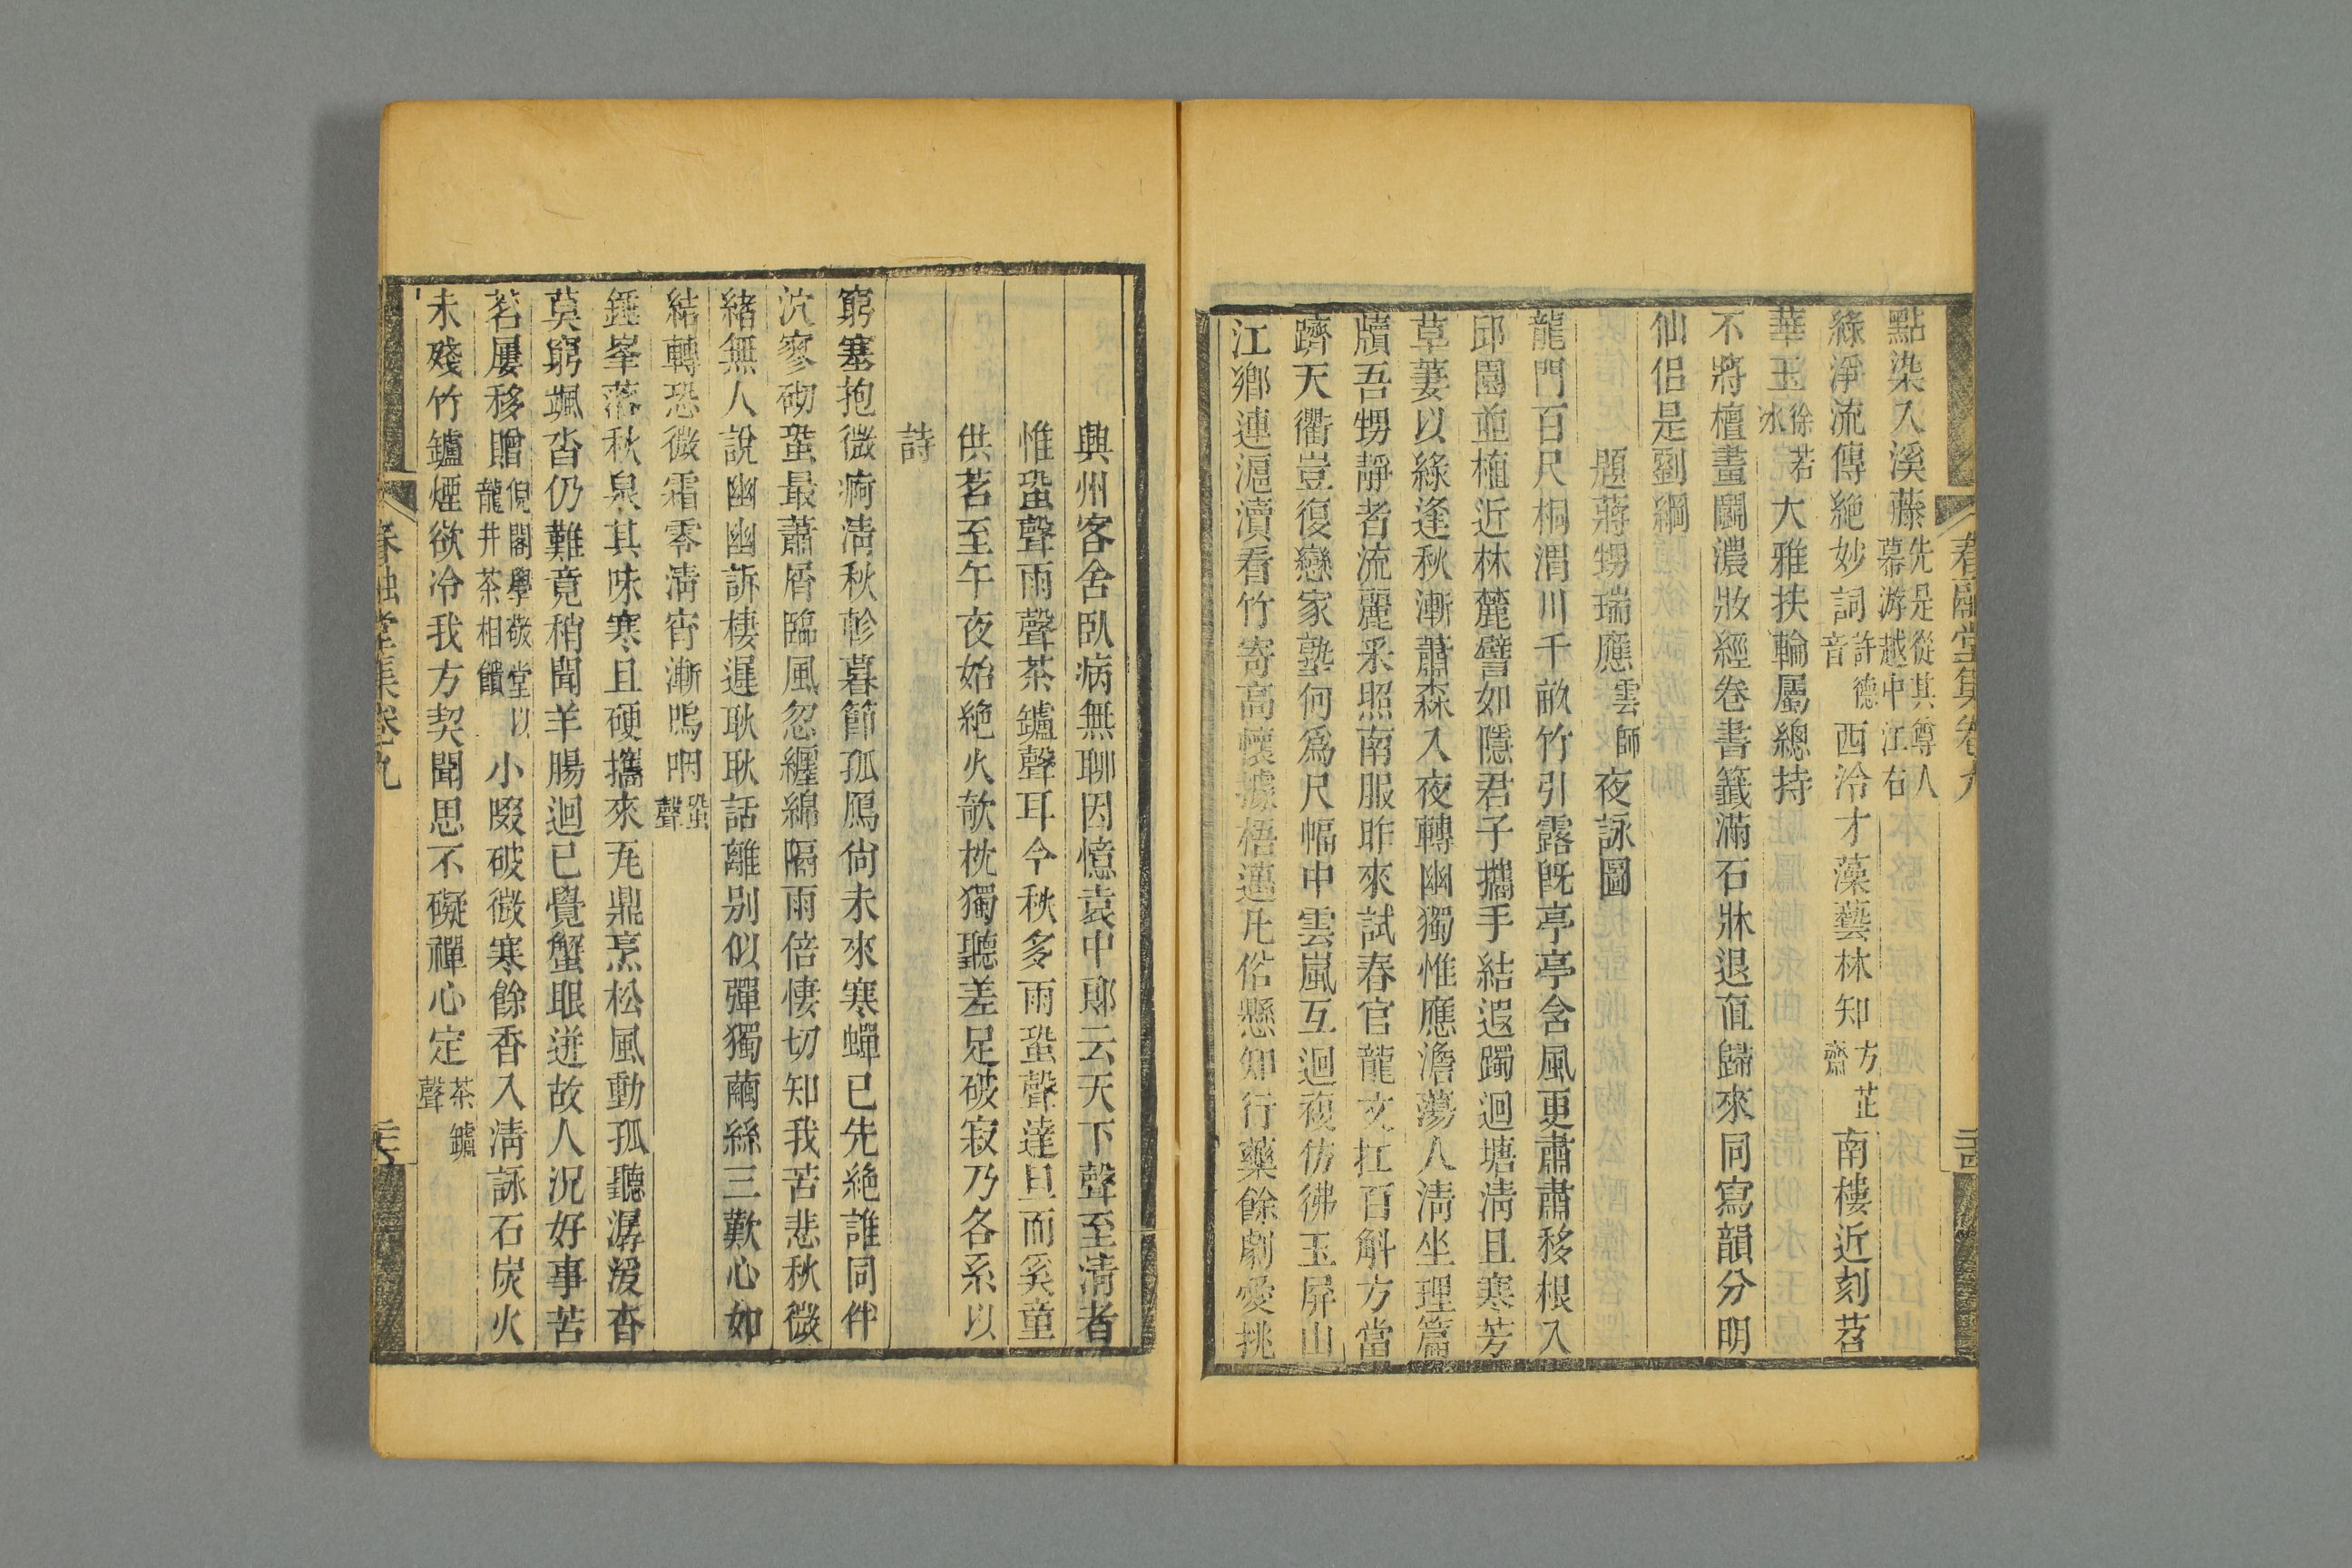 春融堂集卷九
點染入溪藤先是從其尊人幕游越中江右
綠淨流傳絶妙詞許德音西泠才藻藝林知方芷齋南樓近刻苕
華玉徐若冰大雅扶輪屬總持
不將檀畫鬭濃妝經卷書籤滿石牀退直歸來同寫韻分明
仙侣是劉綱
題蔣甥瑞應雲師夜詠圖
龍門百尺桐渭川千畝竹引露旣亭亭含風更肅肅移根入
邱園並植近林麓譬如隱君子攜手結遐躅迴塘淸且寒芳
草萋以綠逢秋漸蕭森入夜轉幽獨惟應澹蕩人淸坐理篇
牘吾甥靜者流麗采照南服昨來試春官龍文扛百斛方當
躋天衢豈復戀家塾何爲尺幅中雲嵐互迴複仿彿玉屏山
江鄉連滬瀆看竹寄高懷據梧邁凡俗懸知行藥餘劇愛挑
興州客舍臥病無聊因憶袁中郞云天下聲至淸者
惟蛩聲雨聲茶鑪聲耳今秋多雨蛩聲達旦而奚童
供茗至午夜始絶火欹枕獨聽差足破寂乃各系以
詩
窮塞抱微痾淸秋軫暮節孤鴈尙未來寒蟬已先絶誰同伴
泬寥砌蛩最蕭屑臨風忽纏綿隔雨倍悽切知我苦悲秋微
緖無人說幽幽訴棲遲耿耿話離别似彈獨繭絲三歎心如
結轉恐微霜零淸宵漸嗚咽蛩聲
錘峯落秋泉其味寒且硬攜來瓦鼎烹松風動孤聽潺湲杳
莫窮颯沓仍難竟稍聞羊腸迴已覺蟹眼迸故人況好事苦
茗屢移贈倪閣學敬堂以龍井茶相饋小啜破微寒餘香入淸詠石炭火
未殘竹鑪煙欲冷我方契聞思不礙禪心定茶鑪聲
春融堂集卷九